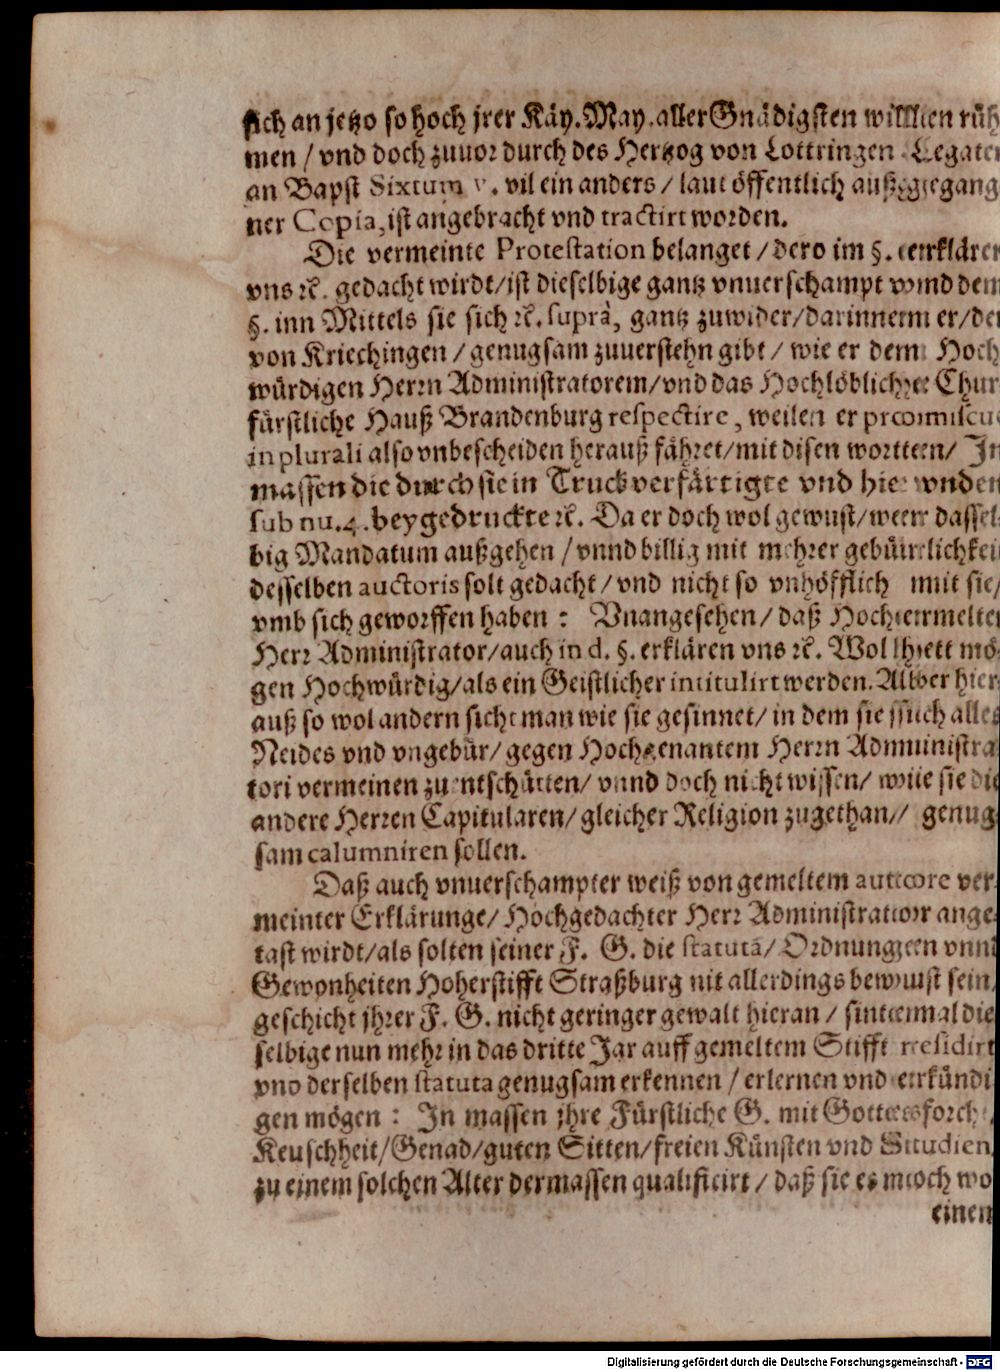 sich an jetzo so hoch jrer Käy. May. aller Gnädigsten willen rüh
men / vnd doch zuuor durch des Hertzog von Lottringen Legaten
an Bapst Sixtum v. vil ein anders / laut öffentlich außgegang
ner Copia, ist angebracht vnd tractirt worden.
Die vermeinte Protestation belanget / dero im §. erkläre
vns ꝛc. gedacht wirdt / ist dieselbige gantz vnuerschampt vnd dem
§. inn Mittels sie sich ꝛc. suprà, gantz zuwider / darinnen er / de
von Kriechingen / genugsam zuuerstehn gibt / wie er dem Hoch
würdigen Herrn Administratorem / vnd das Hochlöbliche Chur
fürstliche Hauß Brandenburg respectire, weilen er promiscu
in plurali also vnbescheiden herauß fähret / mit disen wortten / In
massen die durch sie in Truck verfärtigte vnd hie vnden
sub nu. 4. beygedruckte ꝛc. Da er doch wol gewust / wer dassel
big Mandatum außgehen / vnnd billig mit mehrer gebürlichkei
desselben auctoris solt gedacht / vnd nicht so vnhöfflich mit sie /
vmb sich geworffen haben : Vnangesehen / daß Hochermelter
Herr Administrator / auch in d. §. erklären vns ꝛc. Wol hett mö
gen Hochwürdig / als ein Geistlicher intitulirt werden. Aber hier
auß so wol andern sicht man wie sie gesinnet / in dem sie sich alles
Neides vnd vngebür / gegen Hochgenantem Herrn Administra
tori vermeinen zu entschütten / vnnd doch nicht wissen / wie sie die
andere Herren Capitularen / gleicher Religion zugethan / genug
sam calumniren sollen.
Daß auch vnuerschampter weiß von gemeltem auttore ver
meinter Erklärunge / Hochgedachter Herr Administrator ange
tast wirdt / als solten seiner F. G. die statuta / Ordnungen vnnd
Gewonheiten Hoherstifft Straßburg nit allerdings bewust sein,
geschicht jhrer F. G. nicht geringer gewalt hieran / sintemal die
selbige nun mehr in das dritte Jar auff gemeltem Stifft residirt
vnd derselben statuta genugsam erkennen / erlernen vnd erkündi
gen mögen : In massen jhre Fürstliche G. mit Gottesforcht,
Keuschheit / Genad / guten Sitten / freien Künsten vnd Studien,
zu einem solchen Alter dermassen qualificirt / daß sie es noch wo
einen
Digitalisierung gefördert durch die Deutsche Forschungsgemeinschaft - DFG